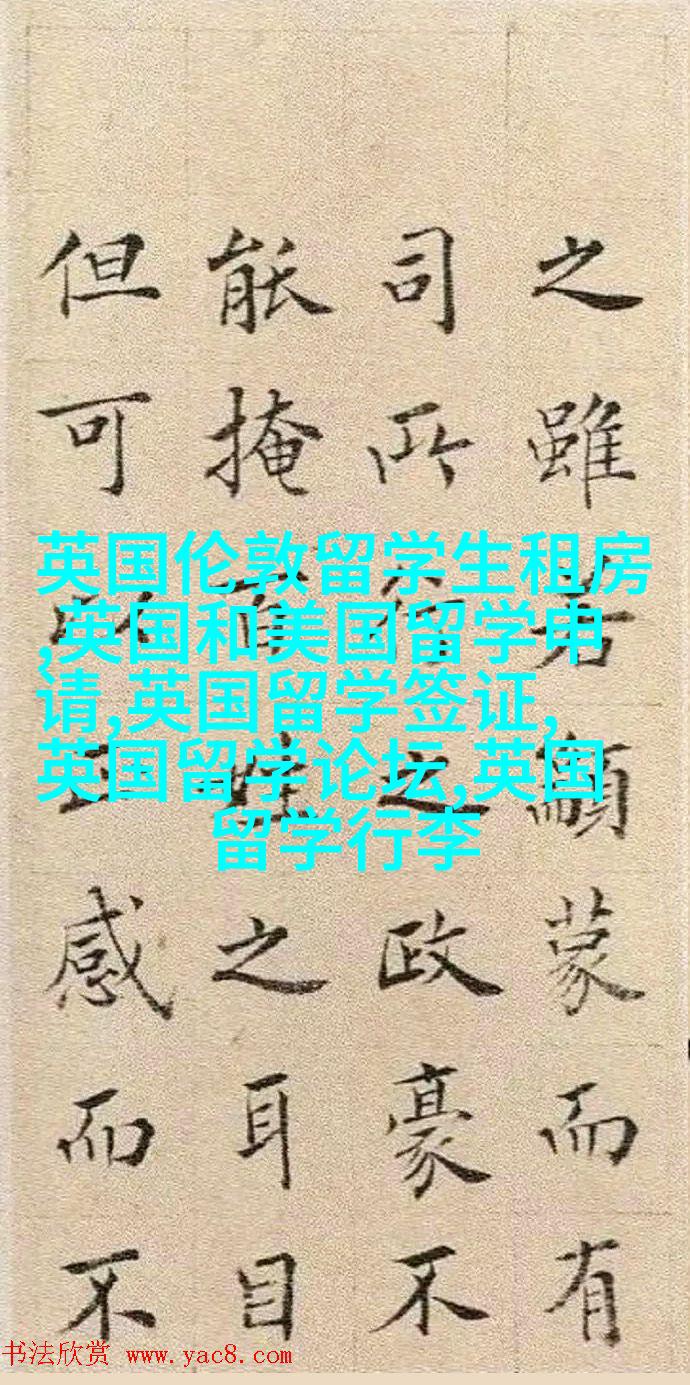 之雖若顓蒙而有
司所行之政豪不
能掩百姓之耳目
但可以正感而不
英国伦敦留学生租房
,英国和美国留学申
请,英国留学签证,
英国留学论坛,英国
留学行李
书法欣赏 www.yac8.com